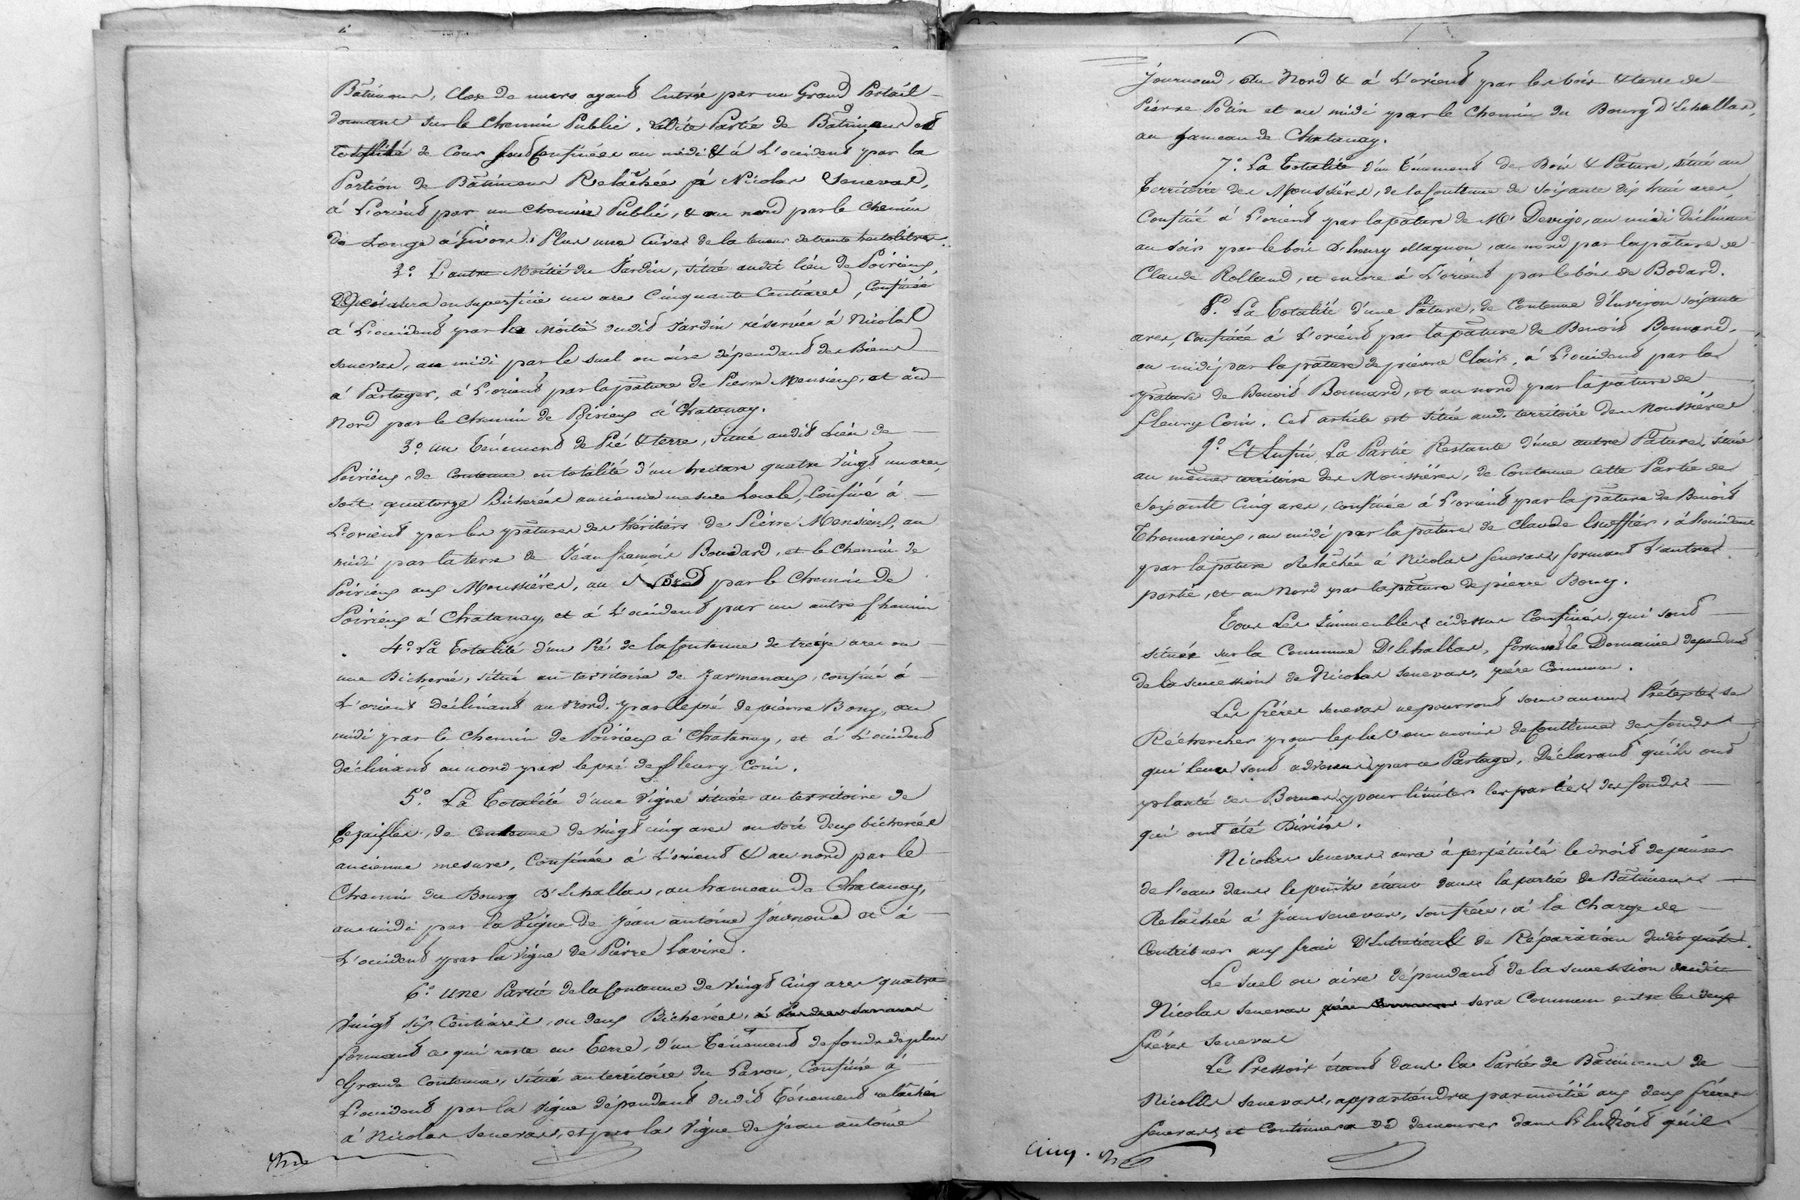 Bâtimens, Clos de murs ayant Entrée par un Grand Portail
donnant sur le Chemin Public. Ladite Partie de Bâtimens et
totalité de Cour sont Confinées au midi & à L'occident par la
Portion de Bâtimens Relachée à Nicolas Seneval,
à L'orient par un Chemin Public, & au nord par le Chemin
de Longe à Givors. Plus une Cuve de la teneur de trente hectolitres.
2.° L'autre Moitié du Jardin, situé audit lieu de Poirieux,
en superficie un are Cinquante Centiares, Confinée
à L'occident par la Moitié dudit Jardin réservée à Nicolas
Seneval, au midi par le suel ou aire dépendant des Biens
à Partager, à L'orient par la pâture de Pierre Monsieux, et au
Nord par le Chemin de Poirieux à Chatanay.
3.° un Tenement de Pré & terre, situé audit Lieu de
Poirieux, de Contenue en totalité d'un hectare quatre Vingt un ares,
soit quatorze Bicherées ancienne mesure Locale, Confiné à
L'orient par les pâtures des héritiers de Pierre Monsieux, au
midi par la terre de Jean françois Boudard, et le Chemin de
Poirieux aux Moussières, au Nord par le Chemin de
Poirieux à Chatanay, et à L'occident par un autre Chemin
4.° La Totalité d'un Pré de la Contenue de treize ares ou
une Bicherée, situé au territoire de Jarmenaux, confiné à
L'orient déclinant au Nord, par le pré de pierre Bony, au
midi par le Chemin de Poirieux à Chatanay, et à L'occident
déclinant au nord par le pré de fleury Coin.
5.° La Totalité d'une Vigne située au territoire de
de Contenue de Vingt cinq ares ou soit deux bicherées
ancienne mesure, Confinée à L'orient & au nord par le
Chemin du Bourg D'Echallas, au hameau de Chatanay,
au midi par la Vigne de Jean antoine Journoud et à
L'occident par la Vigne de Pierre Lavire.
6.° Une Partie de la Contenue de Vingt Cinq ares quatre
Vingt six Centiares, ou deux Bicherées,
formant ce qui reste en Terre, d'un Ténement de fonds de plus
Grande Contenue, situé au territoire du Pavou, Confiné à
L'occident par la Vigne dépendant dudit Ténement relachée
à Nicolas Seneval, et par la Vigne de Jean antoine
Journoud, du Nord & à L'orient par les bois & terre de
Pierre Poin et au midi par le Chemin du Bourg D'Echallas,
au hameau de Chatanay.
7.° La Totalité d'un Ténement de Bois & Pature, situé au
Territoire des Moussières, de la Contenue de soixante dix huit ares
Confiné à L'orient par la pâture de Mr Devigo, au midi déclinant
au soir par le bois d'henry Magnon, au nord par la pâture de
Claude Rolland, et encore à L'orient par le bois de Bodard.
8.° La Totalité d'une Pature, de Contenue d'Environ soixante
ares, Confinée à L'orient par la pature de Benoit Bonnard,
au midi par la pâture de pierre Clair, à L'occident par la
pature de Benoit Bonnard, et au nord par la pâture de
fleury Coin. Cet article est située aud. territoire des Moussières
9.° Et Enfin La Partie Restante d'une autre Pature, située
au même territoire des Moussières, de Contenue cette Partie de
soixante Cinq ares, confinée à L'orient par la pâture de Benoit
Thonnerieux, au midi par la pâture de Claude Gueffier, à L'occident
par la pature Relachée à Nicolas Seneval formant L'autre
partie, et au Nord par la pature de pierre Bony.
Tous Les Immeubles cidessus Confinés, qui sont
situés sur la Commune D'Echallas, forment le Domaine dépendant
de la succession de Nicolas Seneval, père Commun.
Les frères Seneval ne pourront sous aucuns Prétextes se
Réchercher pour le plus ou moins de Contenue des fonds
qui leur sont advenus par ce Partage, Déclarant qu'ils ont
planté des Bornes pour limiter les parties des fonds
qui ont été Divisés.
Nicolas Seneval aura à perpétuité le droit de puiser
de l'eau dans le puits étant dans la partie de Bâtimens
Relachée à Jean Seneval, son frère, à la Charge de
Contribuer aux frais D'Entretien & de Réparation dudit puits.
Le suel ou aire dépendant de la succession dudit
Nicolas Seneval père Commun sera Commun entre les deux
frères Seneval
Le Pressoir étant dans la Partie de Bâtimens de
Nicolas Seneval, appartiendra par moitié aux deux frères
Seneval, et Continuera de demeurer dans L'Endroit qu'il
Cinq.